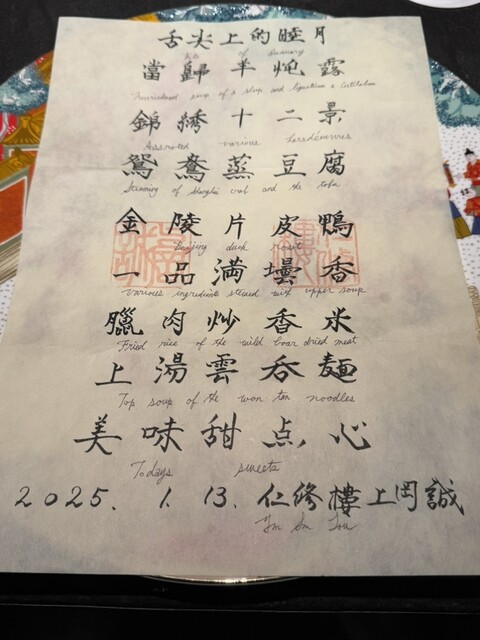 舌尖上的睦月
of January
當歸羊炖露
錦綉十二景
Assorted various horsdeuvres
鴛鴦蒸豆腐
Steaming of Shanghai crab and the tofu
金陵片皮鴨
Beijing duck roast
一品満壜香
various ingredients steamed with upper soup
臘肉炒香米
Fried rice of the wild boar dried meat
上湯雲呑麺
Top soup of the won ton noodles
美味甜点心
Todays sweets
2025. 1. 13. 仁修樓上岡誠